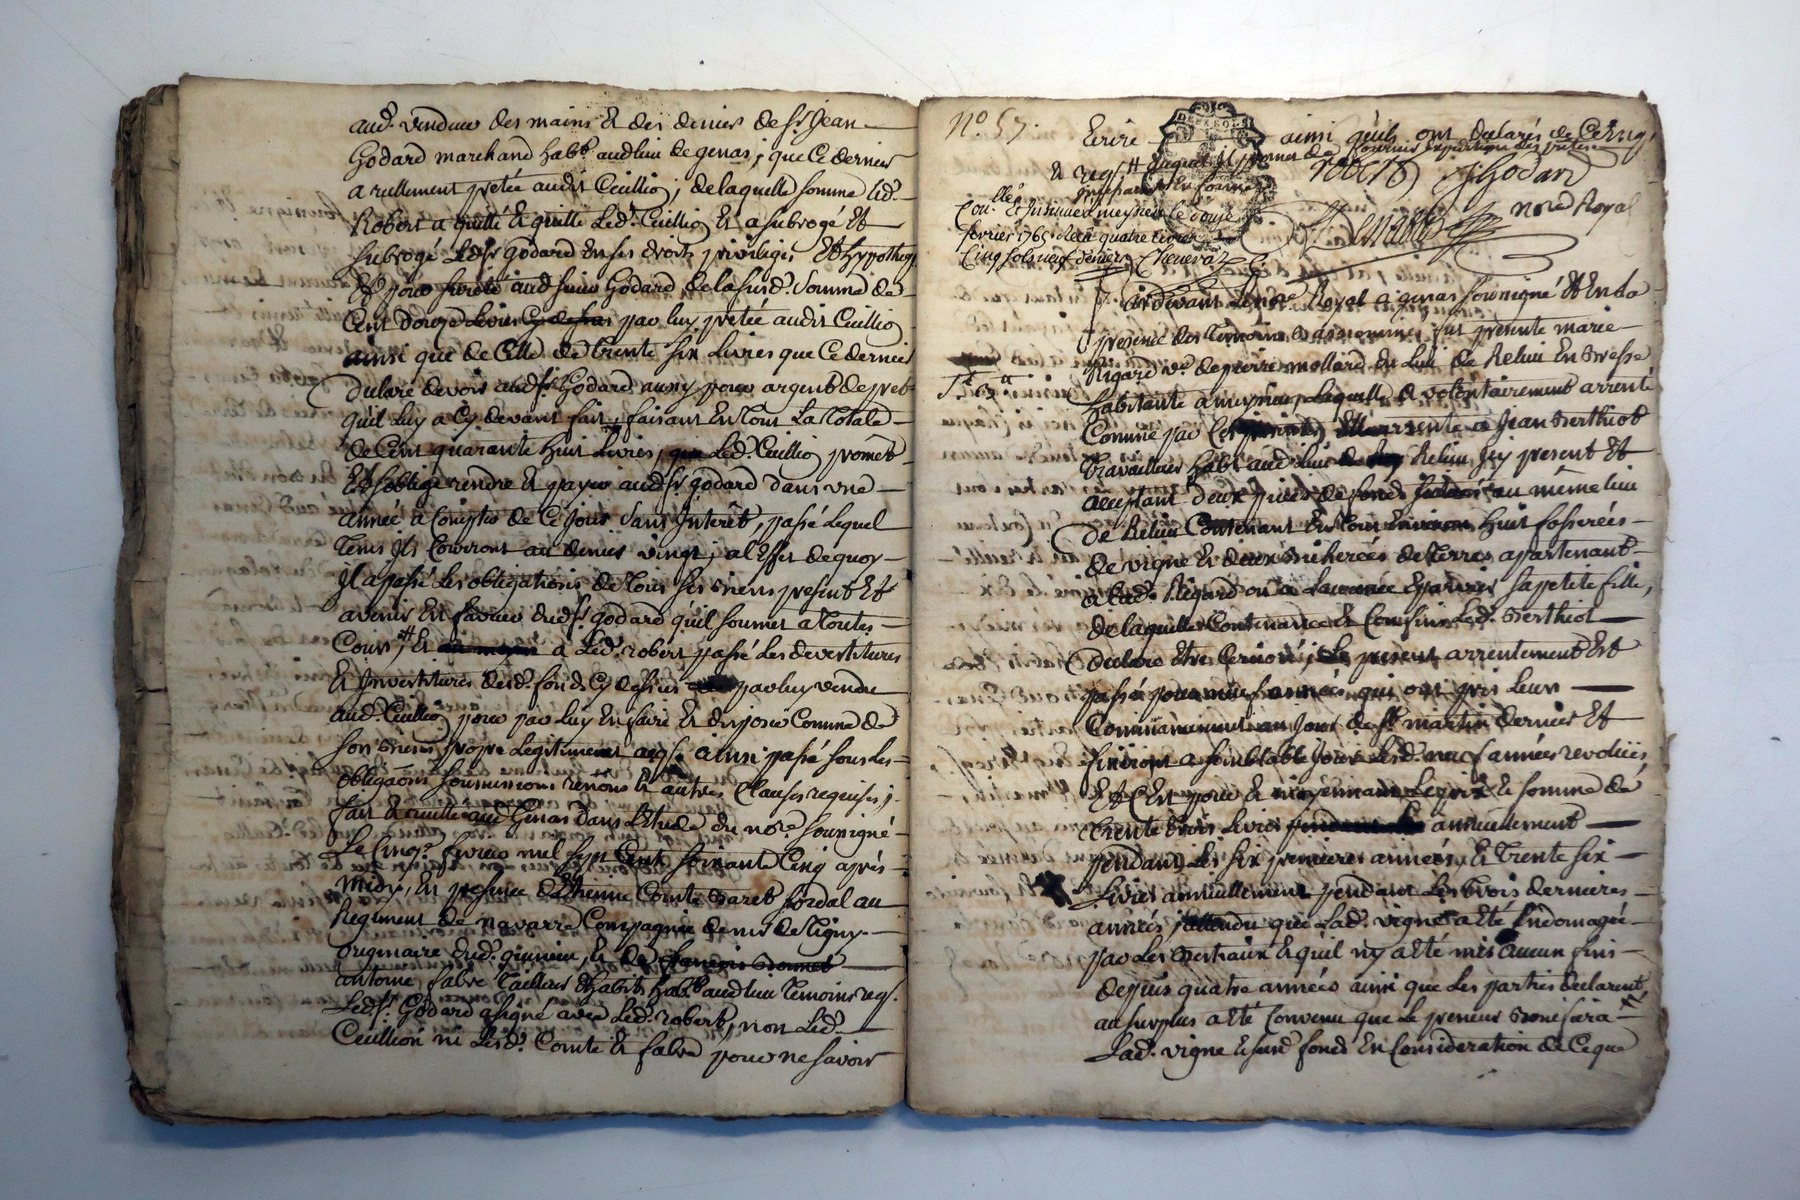 aud. vendeur des mains & des deniers de Sr. Jean
Godard marchand habt. audlieu de genas; que Ce dernier
a reellement pretée audit Ceuillion; de laquelle somme led.
Robert a quitté & quitte Led. Ceuillion & a subrogé Et
subrogé Led Sr Godard En ses droits privileges Et hypotheq.
Et pour sureté aud sieur Godard de la susd. Somme de
Cent douze Livres par luy pretée audit Ceuillion
ainsi que de Celle de trente six Livres que Ce dernier
declare devoir aud Sr. Godard aussy pour argent de pret
qu'il luy a Cy devant fait, faisant En tout La totale
de Cent quarante huit Livres, Led. Ceuillion promet
Et s'oblige rendre & payer aud Sr godard dans une
année a Compter de Ce jour sans Interêt, passé lequel
tems Ils Courront au denier vingt; a l'Effet de quoy
il a passé Les obligations de tous ses biens present Et
avenir En faveur dud Sr. godard qu'il soumet a toutes
Cours; Et a Led. robert passé Les devestitures
& Investitures desd. fonds Cy dessus par luy vendu
aud. Ceuillion pour par luy En faire & disposer Comme de
son bien propre Legitimement aqs. ainsi passé sous les
obligaons soumissions renons & autres Clauses requises;
fait & aud Genas dans L'Etude du nore. soussigné
Le Cinqe. fevrier mil sept Cent soixante Cinq après
midy, En presence d'Ethienne Comte soldat au
Regiment de navarre Compagnie de
originaire dud. &
antoine fabre Tailleur d'habits habt. aud lieu temoins reqs.
Led Sr. Godard a signé avec Led. robert, non Led.
Ceuillion ni Lesd. Comte & fabre pour ne savoir
No. 57.
Ecrire ainsi qu'ils ont declarés de Ce Enq.
& reqs.
robert J Godard
nore Royal
Con. Et Insinué a meysieu le douze
fevrier 1765. Reçu quatre livres
Cinq sols neuf deniers Chenevaz
Pardevant Le nore. Royal a genas soussigné & En la
presence des temoins Bas nommés fut presente marie
Rigard ve. de pierre mollard du Lieu de
habitante a meysieu, Laquelle a volontairement arrenté
Comme par a Jean Berthiot
travailleur habt. aud lieu de Icy present Et
acceptant deux pieces de fonds au même lieu
de Contenant En tout Environ huit fosserées
de vigne & deux bicherées de terres apartenant
a Lad. Rigard ou a Laurence sa petite fille,
de laquelle Contenance & Confins Led. Berthiot
declare Etre Cerioré; present arrentement Est
passé pour neuf années qui ont pris Leur
Commancement au Jour de St. martin dernier Et
finiront a semblable Jour Lesd. neuf années revolües,
Et C'Est pour & moyennant Le prix & somme de
trente trois Livres annuellement
pendant Les six premieres années, & trente six
Livres annuellement pendant Les trois dernieres
années, attendu que Lad. vigne a Eté Endomagée
par Les bestiaux & qu'il n'y a Eté mis aucun
depuis quatre années ainsi que Les parties declarent,
au surplus a Eté Convenu que Le preneur
Lad. vigne & fonds En Consideration de Ce que